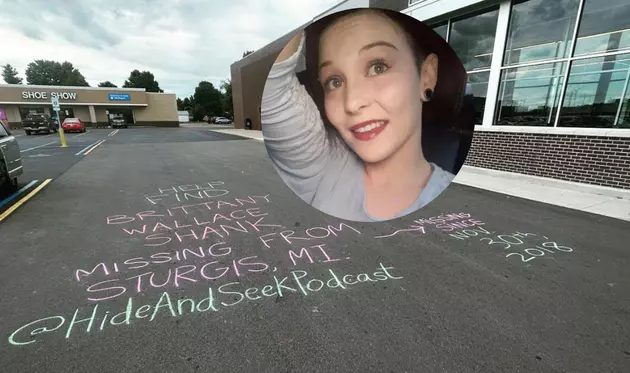 SHOE SHOW
HELP
FIND
BRITTANY
WALLACE
SHANK
MISSING FROM
STURGIS, MI.
MISSING
SINCE
NOV.
30TH,
2018
@HideAndSeekPodcast